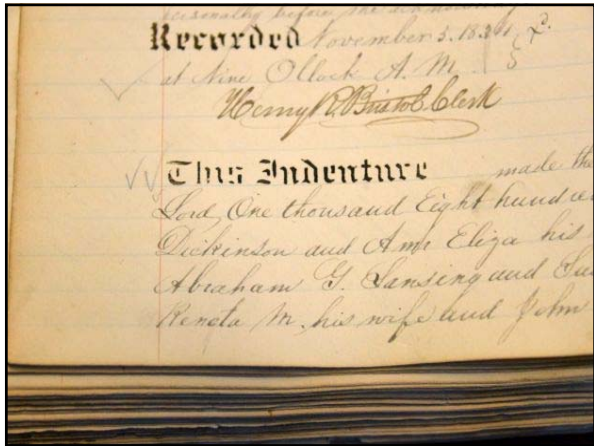 personally before the
Recorded November 5. 18
at Nine O'Clock A. M.
Henry R. Bristol Clerk
This Indenture made the
Lord, One thousand Eight hundred
Dickinson and Ann Eliza his
Abraham G. Lansing and Su
Reneta M. his wife and John